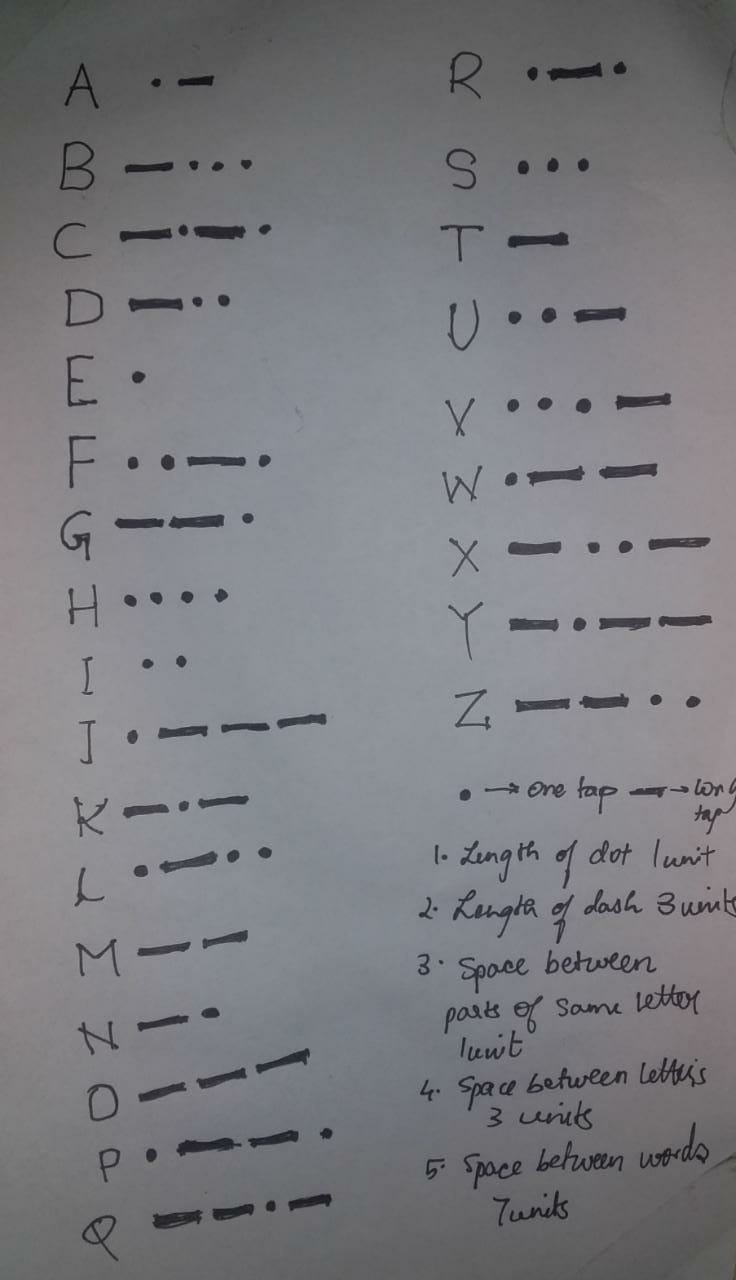 A • —
B — • • •
C — • — •
D — • •
E •
F • • — •
G — — •
H • • • •
I • •
J • — — —
K — • —
L • — • •
M — —
N — •
O — — —
P • — — •
Q — — • —
R • — •
S • • •
T —
U • • —
V • • • —
W • — —
X — • • —
Y — • — —
Z — — • •
• → one tap — → long
tap
1. Length of dot 1unit
2. Length of dash 3 units
3. Space between
parts of same letter
1unit
4. Space between letters
3 units
5. Space between words
7units